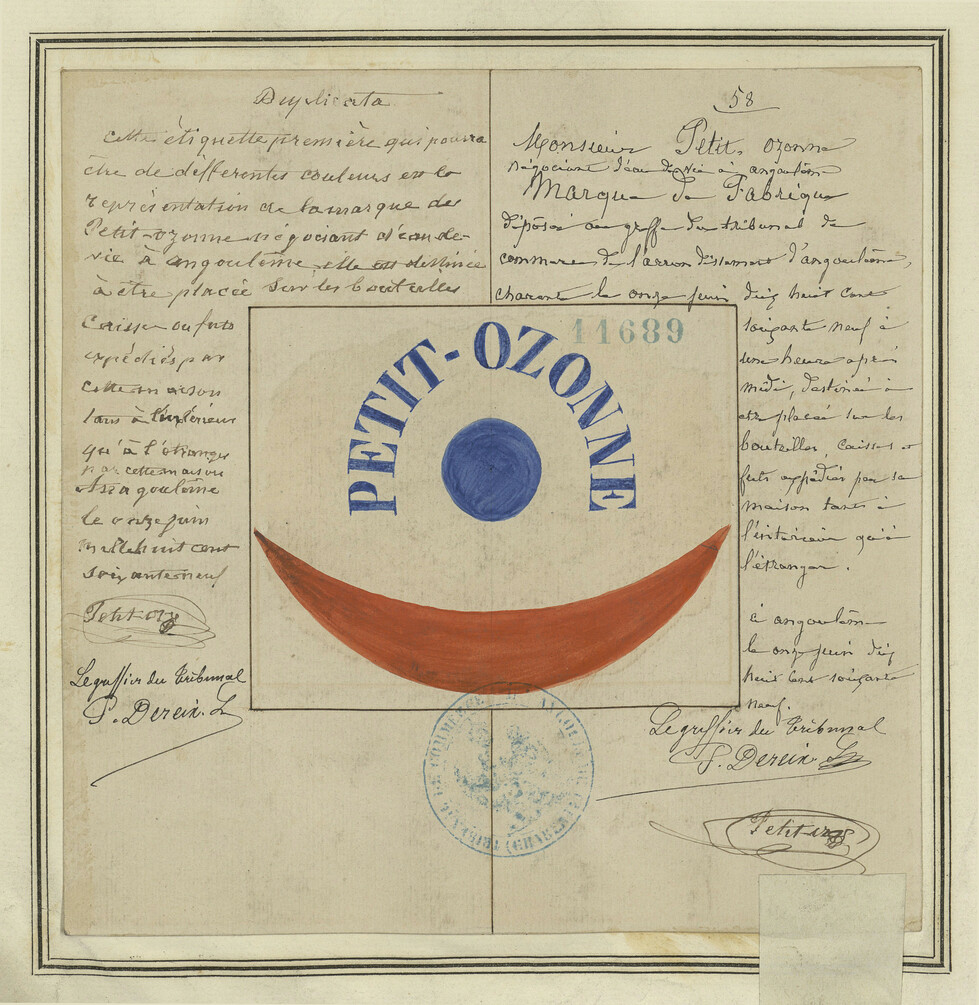 Duplicata
cette étiquette première qui pourra
être de différentes couleurs est la
représentation de la marque de
Petit-ozonne négociant d'eau-de-
vie à angoulême, elle est destinée
à être placée sur les bouteilles
caisses ou futs
expédiés par
cette maison
tans à l'intérieur
qu'à l'étranger
par cette maison
angoulême
le onze juin
mil huit cent
soixante neuf
Petit-oz
Le greffier du tribunal
P. Derein
58
Monsieur Petit-ozonne
négociant d'eau de vie à angoulême
Marque de Fabrique
déposée au greffe du tribunal de
commerce de l'arrondissement d'angoulême,
charente le onze juin dix huit cent
soixante neuf à
une heure après
midi, destinée à
etre placée sur les
bouteilles, caisses et
futs expédiés par sa
maison tans à
l'intérieur qu'à
l'étranger.
à angoulême
le onze juin dix
huit cent soixante
neuf.
Le greffier du tribunal
P. Derein
Petit-oz
11689
PETIT-OZONNE
TRIBUNAL DE COMMERCE D'ANGOULÊME (CHARENTE)